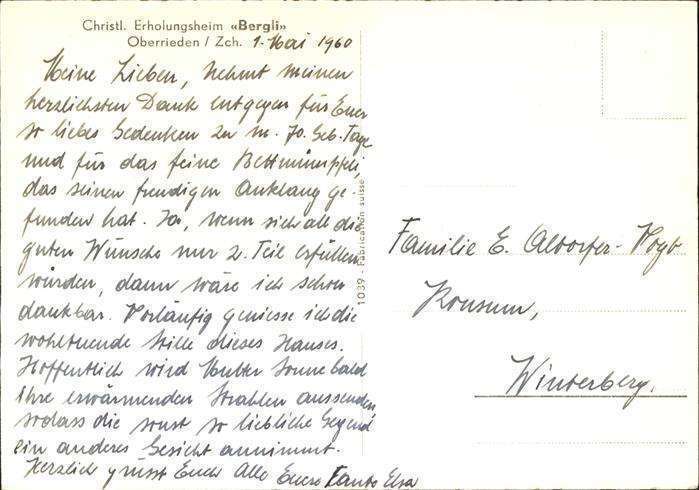 Christl. Erholungsheim «Bergli»
Oberrieden / Zch. 1. Mai 1960
Meine Lieben, Nehmt meinen
herzlichsten Dank entgegen für Euer
so liebes Gedenken zu m. 70. Geb. Tage
und für das feine Bettmümpfeli,
das seinen freudigen Anklang ge-
funden hat. Ja, wenn sich all die
guten Wünsche nur z. Teil erfüllen
würden, dann wäre ich schon
dankbar. Vorläufig geniesse ich die
wohltuende Stille dieses Hauses.
Hoffentlich wird Mutter Sonne bald
ihre erwärmenden Strahlen aussenden,
sodass die sonst so liebliche Gegend
ein anderes Gesicht annimmt.
Herzlich grüsst Euch Alle Eure Tante Elsa
1039 - Fabrication suisse
Familie E. Altorfer-Vogt
Konsum,
Winterberg.